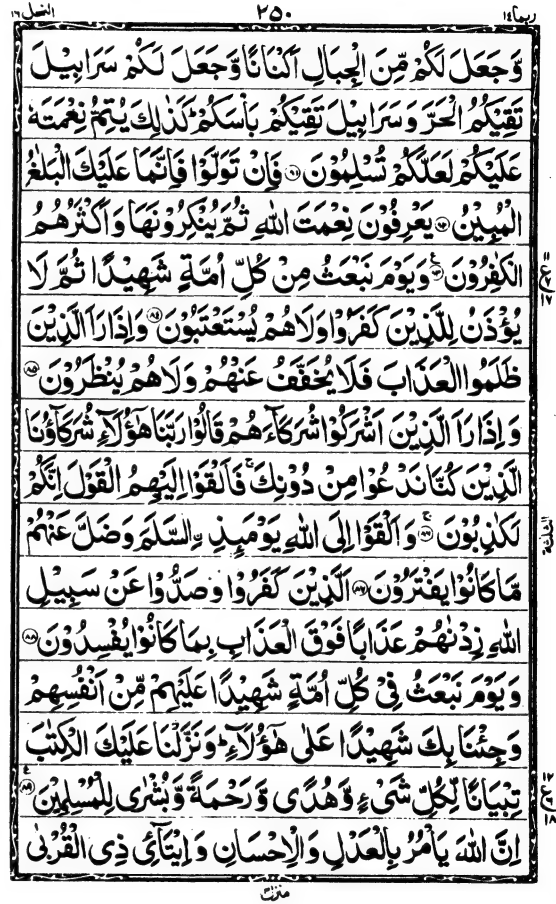 النحل ١٦ ٢٥٠ ربما ١٤
وَّجَعَلَ لَكُمْ مِّنَ الْجِبَالِ اَكْنَانًا وَّجَعَلَ لَكُمْ سَرَابِيْلَ
تَقِيْكُمُ الْحَرَّ وَسَرَابِيْلَ تَقِيْكُمْ بَاْسَكُمْ ؕ كَذٰلِكَ يُتِمُّ نِعْمَتَهٗ
عَلَيْكُمْ لَعَلَّكُمْ تُسْلِمُوْنَ ﴿۸۱﴾ فَاِنْ تَوَلَّوْا فَاِنَّمَا عَلَيْكَ الْبَلٰغُ
الْمُبِيْنُ ﴿۸۲﴾ يَعْرِفُوْنَ نِعْمَتَ اللّٰهِ ثُمَّ يُنْكِرُوْنَهَا وَاَكْثَرُهُمُ
الْكٰفِرُوْنَ ﴿۸۳﴾ وَيَوْمَ نَبْعَثُ مِنْ كُلِّ اُمَّةٍ شَهِيْدًا ثُمَّ لَا
يُؤْذَنُ لِلَّذِيْنَ كَفَرُوْا وَلَا هُمْ يُسْتَعْتَبُوْنَ ﴿۸۴﴾ وَاِذَا رَاَ الَّذِيْنَ
ظَلَمُوا الْعَذَابَ فَلَا يُخَفَّفُ عَنْهُمْ وَلَا هُمْ يُنْظَرُوْنَ ﴿۸۵﴾
وَاِذَا رَاَ الَّذِيْنَ اَشْرَكُوْا شُرَكَآءَهُمْ قَالُوْا رَبَّنَا هٰٓؤُلَآءِ شُرَكَآؤُنَا
الَّذِيْنَ كُنَّا نَدْعُوْا مِنْ دُوْنِكَ ۚ فَاَلْقَوْا اِلَيْهِمُ الْقَوْلَ اِنَّكُمْ
لَكٰذِبُوْنَ ﴿۸۶﴾ وَاَلْقَوْا اِلَى اللّٰهِ يَوْمَىِٕذِ ِۨالسَّلَمَ وَضَلَّ عَنْهُمْ
مَّا كَانُوْا يَفْتَرُوْنَ ﴿۸۷﴾ اَلَّذِيْنَ كَفَرُوْا وَصَدُّوْا عَنْ سَبِيْلِ
اللّٰهِ زِدْنٰهُمْ عَذَابًا فَوْقَ الْعَذَابِ بِمَا كَانُوْا يُفْسِدُوْنَ ﴿۸۸﴾
وَيَوْمَ نَبْعَثُ فِيْ كُلِّ اُمَّةٍ شَهِيْدًا عَلَيْهِمْ مِّنْ اَنْفُسِهِمْ
وَجِئْنَا بِكَ شَهِيْدًا عَلٰى هٰٓؤُلَآءِ ؕ وَنَزَّلْنَا عَلَيْكَ الْكِتٰبَ
تِبْيَانًا لِّكُلِّ شَيْءٍ وَّهُدًى وَّرَحْمَةً وَّبُشْرٰى لِلْمُسْلِمِيْنَ ﴿۸۹﴾
اِنَّ اللّٰهَ يَاْمُرُ بِالْعَدْلِ وَالْاِحْسَانِ وَاِيْتَآئِ ذِي الْقُرْبٰى